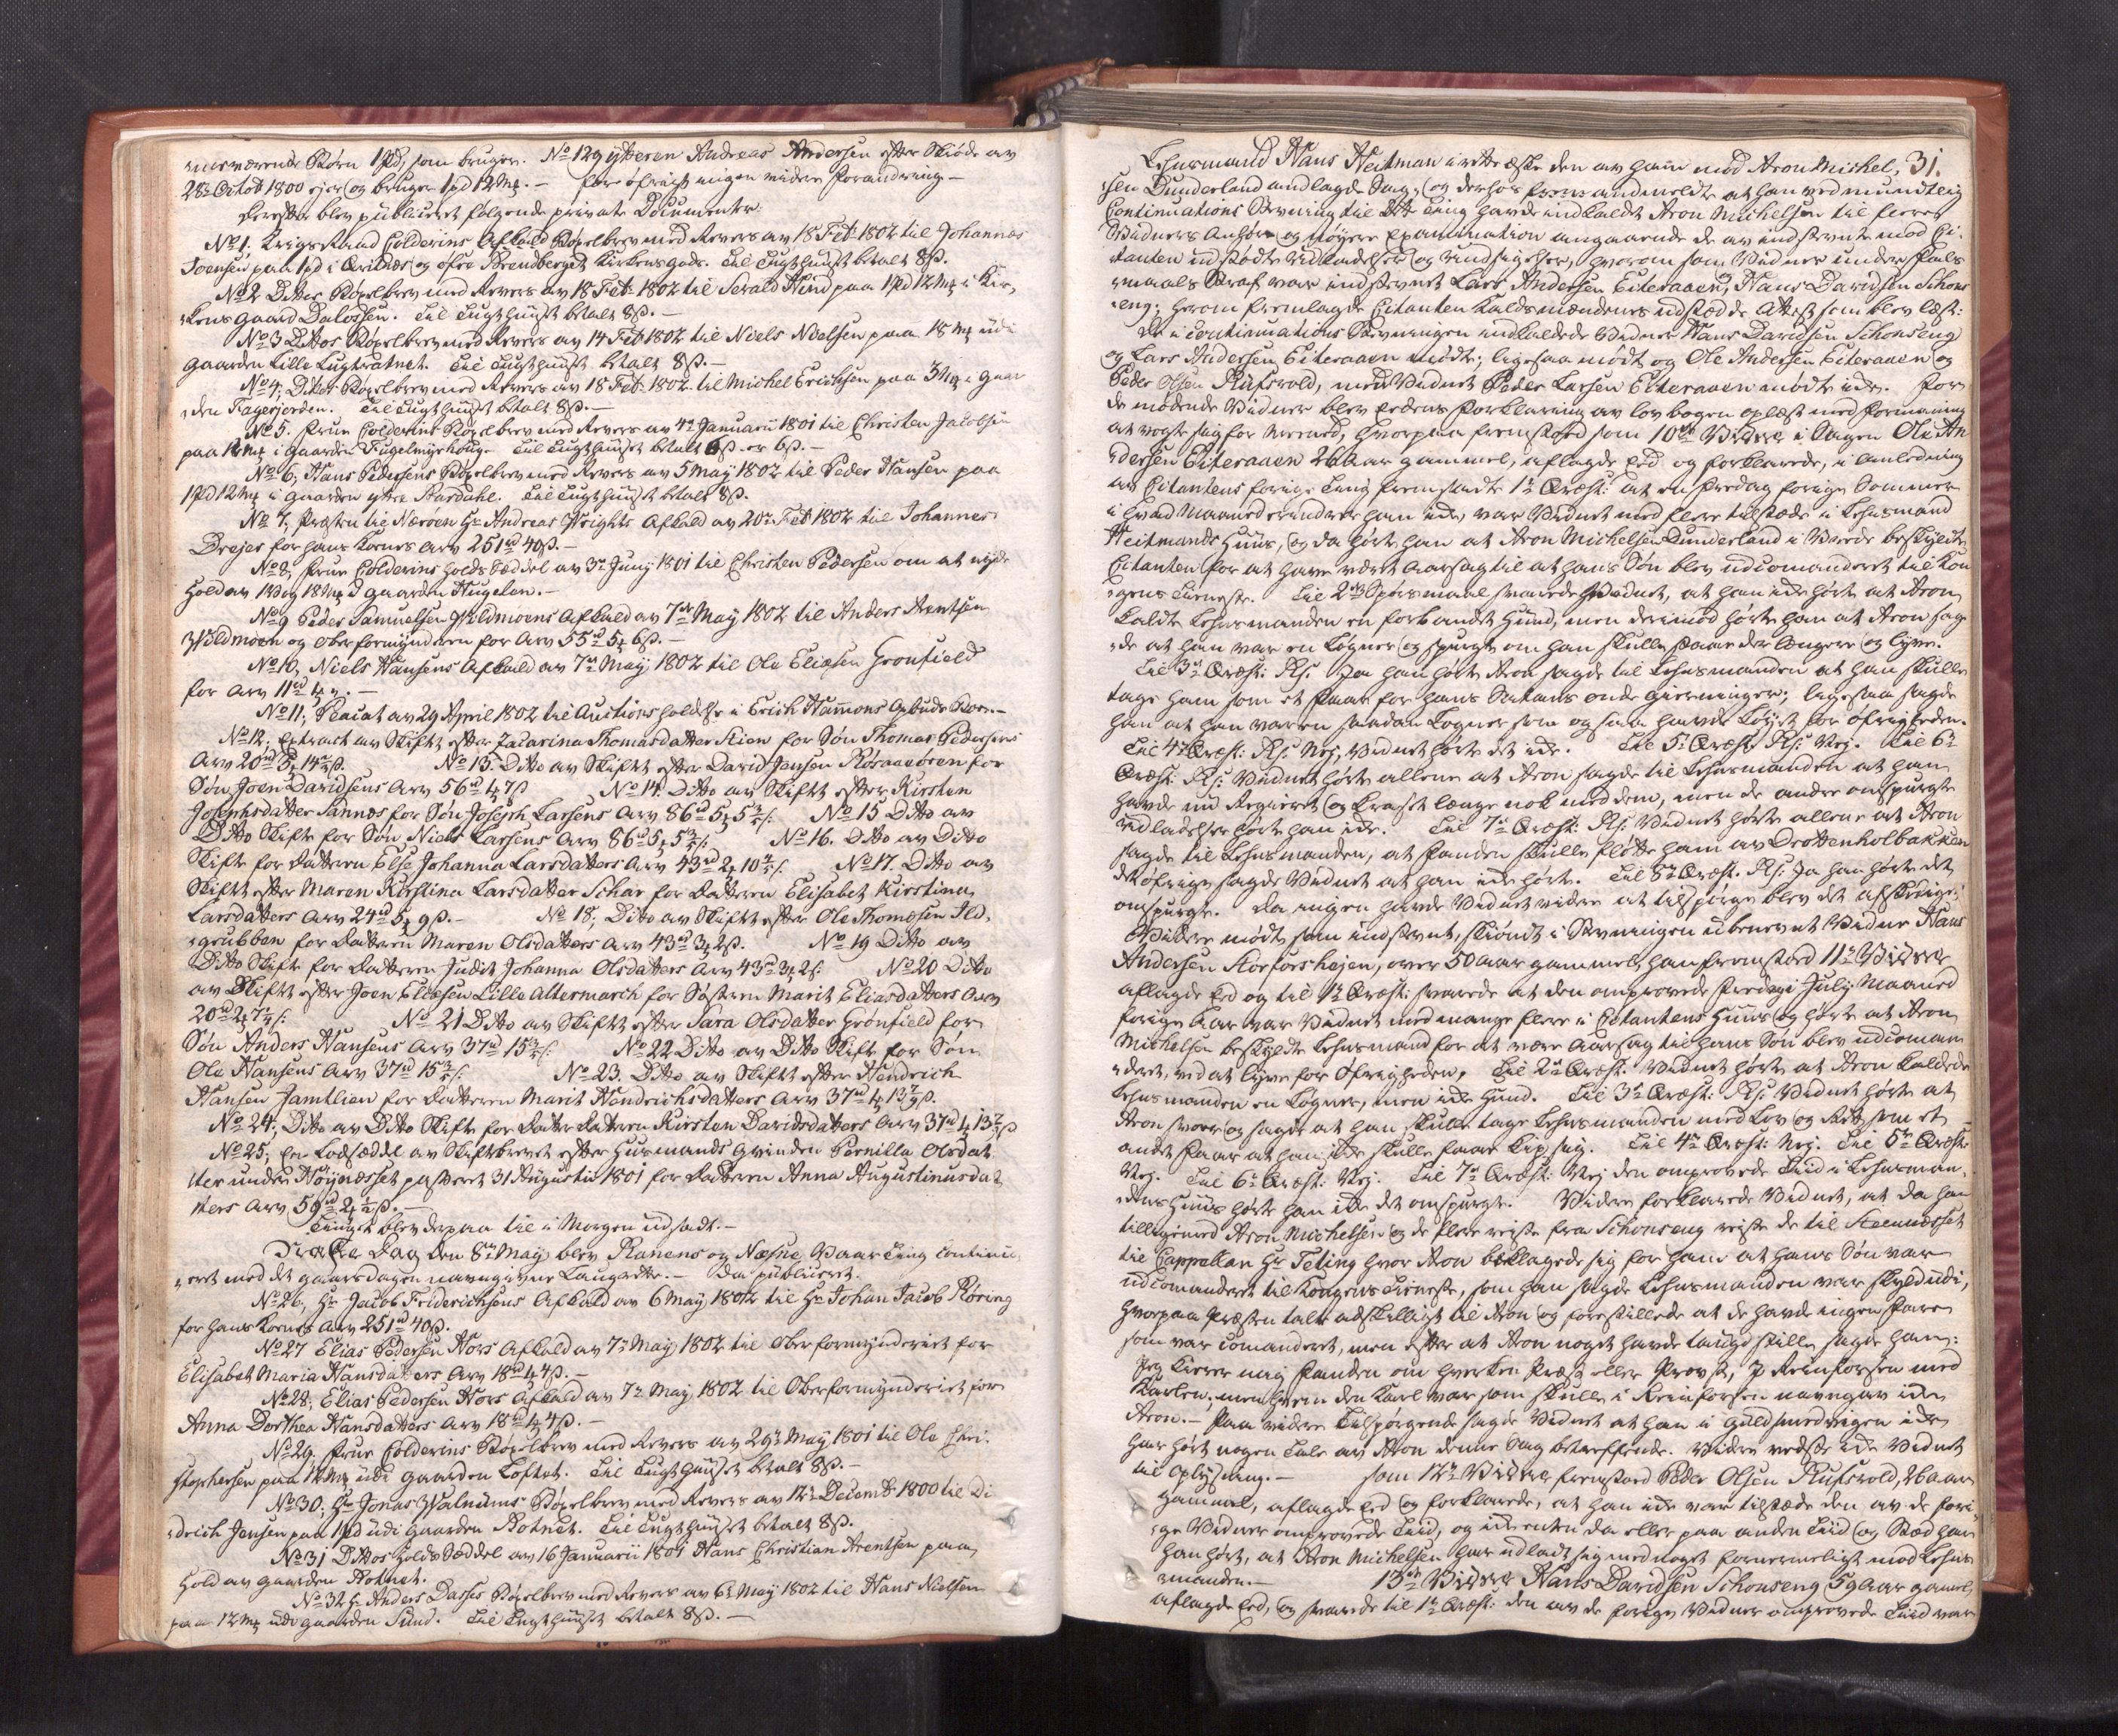 nærværende Børn 1 pd, som bruger. No 129 ytteren Andreas Andersen efter Skiøde av
28de Octob 1800 ejer og bruger 1 pd 12 mk. - for øfrigt ingen videre forandring -
Derefter blev publiceret følgende private Documenter
No 1. KrigsRaad Colderins Afkald Bøxelbrev med Revers av 18 Feb: 1802 til Johannes
Joensen paa 1 pd i Qvitnæs og øfre Brendberget Kirkens gods. Til Tugthuuset betalt 8 ß.
No 2 Dittos Bøxelbrev med Revers av 18 Feb: 1802 til Serald Hind paa 1 pd 12 mk i Kir-
kens gaard Dalossen. Til Tugthuuset betalt 8 ß. -
No 3 Dittos Bøxelbrev med Revers av 14 Feb 1802 til Niels Nielsen paa 15 mk udi
gaarden Lille Lugtvatnet. Til Tugthuuset betalt 8 ß. -
No 4, Dittos Bøxelbrev med Revers av 18 Feb: 1802. til Michel Erichsen paa 3 mk i gaar
den Fagerjorden. Til Tugthuuset betalt 8 ß. -
No 5. Frue Colderins Bøxelbrev med Revers av 4de Januarii 1801 til Christen Jacobsen
paa 12 mk i gaarden Fuglemyrhoug. Til Tugthuuset betalt 6 ß er 6 ß. -
No 6, Hans Pedersens Bøxelbrev med Revers av 5 May 1802 til Peder Hansen paa
1 pd 12 mk i gaarden ytre Aardahl. Til Tugthuuset betalt 8 ß.
No 7, Præsten til Nærøen Hr Andreas Wrights Afkald av 20de Feb 1802 til Johannes
Drejer for hans Kones Arv 251 rd 40 ß. -
No 8, Frue Colderins Holds Seddel av 3de Juny 1801 til Christen Pedersen om at nyde
Hold av 1 pd og 18 mk i gaarden Haugelen. -
No 9 Peder Samuelsen Hildmoens Afkald av 7de May 1802 til Anders Arentsen
Hildmoen og Oberformynderen for Arv 55 rd 5 mk 6 ß. -
No 10, Niels Hansens Afkald av 7de May 1802 til Ole Eliæsen Grønfield
for Arv 11 rd 4 mk. -
No 11, Placat av 29 April 1802 til Auctions holdelse i Erich Hammons Opbuds Boe. -
No 12. Extract av Skiftet efter Zacarina Thomasdatter Stien for Søn Thomas Pedersens
Arv 20 rd 5 mk 14 ß. No 13 Ditto av Skiftet efter David Jensen Røsaaøren for
Søn Joen Davidsens Arv 56 rd 4 mk 7 ß No 14. Ditto av Skiftet efter Kirsten
Josephsdatter Sannæs for Søn Joseph Larsens Arv 86 rd 5 mk 5 ß. No 15 Ditto av
Ditto Skifte for Søn Niels Larsens Arv 86 rd 5 mk 5 ß. No 16. Ditto av Ditto
Skifte for Datteren Else Johanna Larsdatters Arv 43 rd 2 mk 10 ß. No 17. Ditto av
Skiftet efter Maren Kirstina Larsdatter Schar for Datteren Elisabet Kirstina
Larsdatters Arv 24 rd 5 mk 9 ß. - No 18, Ditto av Skiftet efter Ole Thomæsen Ild-
grubben for Datteren Maren Olsdatters Arv 43 rd 3 mk 2 ß. No 19 Ditto av
Ditto Skifte for Datteren Judit Johanna Olsdatters Arv 43 rd 3 mk 2 ß. No 20 Ditto
av Skiftet efter Joen Eliesen Lille Altermarch for Søsteren Marit Eliasdatters Arv
20 rd 2 mk 7 ß. No 21 Ditto av Skiftet efter Sara Olsdatter Grønfield for
Søn Anders Hansens Arv 37 rd 15 ß. No 22 Ditto av Ditto Skifte for Søn
Ole Hansens Arv 37 rd 15 ß. No 23. Ditto av Skiftet efter Hendrich
Hansen Jamtlien for Datteren Marit Hendrichsdatters Arv 37 rd 4 mk 13 ß.
No 24, Ditto av Ditto Skifte for Datter Datteren Kirsten Davidsdatters Arv 37 rd 4 mk 13 ß
No 25, En Lodseddel av Skiftebrevet efter Huusmands Qvinden Pernilla Olsdat
ter under Høynæsset passeret 31 Augustii 1801 for Datteren Anna Augustinusdat
ters Arv 59 rd 2 mk ß. -
Tinget blev derpaa til i Morgen udsadt. -
Næste Dag den 8de May blev Ranens og Næsne Vaar Ting continu-
eret med det gaarsdagen navngivne Laugrette. - Da publiceret.
No 26, Hr Jacob Friderichsens Afkald av 6 May 1802 til Hr Johan Jacob Røring
for hans Kones Arv 251 rd 40 ß.
No 27 Elias Pedersen Hors Afkald av 7de May 1802 til Oberformynderiet for
Elisabet Maria Hansdatters Arv 18 rd 4 mk 4 ß. -
No 28, Elias Pedersen Hors Afkald av 7de May 1802 til Oberformynderiet for
Anna Dorthea Hansdatters Arv 18 rd 4 mk 4 ß. -
No 29, Frue Colderins Bøxelbrev med Revers av 29de May 1801 til Ole Chri-
stophersen paa 12 mk udi gaarden Loftet. Til Tugthuuset betalt 8 ß. -
No 30, Hr Jonas Walnums Bøxelbrev med Revers av 12te Decemb: 1800 til Di
drich Jensen paa 1 pd udi gaarden Botnet. Til Tugthuuset betalt 8 ß.
No 31 Dittos Holds Seddel av 16 Januarii 1801 Hans Christian Arentsen paa
Hold av gaarden Botnet.
No 32 Hr Anders Dasses Bøxelbrev med Revers av 6te May 1802 til Hans Nielsen
paa 12 mk udi gaarden Sund. Til Tugthuuset betalt 8 ß. -
31.
Lehnsmand Hans Heitman irætteæskte den av ham mod Aron Michel-
sen Dunderland anlagde Sag, og derhos anmeldte at han ved mundtlig
Continuations Stevning til dette Ting havde indkaldt Aron Michelsen til fleres
Vidners Anhør og nøyere Examination angaaende de av indstevnte mod Ci-
tanten udstødte Udladelser og Undsigelser, hvorom som Vidner under Fals
maals Straf var indstevnet Lars Andersen Eiteraaen, Hans Davidsen Schons
eng; herom fremlagde Citanten Kaldsmændenes udstædde Attest som blev læst:
De i Continuations Stevningen indkaldede Vidner Hans Davidsen Schonseng
og Lars Andersen Eiteraaen mødte; ligesaa mødte og Ole Andersen Eiteraaen og
Peder Olsen Rufsvold, men Vidnet Peder Larsen Eiteraaen mødte icke. For
de mødende Vidner blev Eedens Forklaring av lovbogen oplæst med formaning
at vogte sig for Meened, hvorpaa fremstoed som 10de Vidne i Sagen Ole An
dersen Eiteraaen 26 Aar gammel, aflagde Eed og forklarede, i Anledning
av Citantens forrige Ting fremsadte 1te Qvæst: at en Fredag forrige Sommer
i hvad Maaned erindrer han icke, var Vidnet med flere tilstæde i Lehnsmand
Heitmands Huus, og da hørte han at Aron Michelsen Dunderland i Vrede beskyldte
Citanten for at have været Aarsag til at hans Søn blev udcomanderet til Kon
gens Tieneste. Til 2det Spørsmaal svarede Vidnet, at han icke hørte at Aron
kaldte Lehnsmanden en forbandet Hund, men derimod hørte han at Aron sag
de at han var en Løgner og spurgte om han skulle staae der længere og lyve.
Til 3de Qvæst: Rs: Ja han hørte Aron sagde til Lehnsmanden at han skulle
tage ham som et Faar for hans Satans onde Gierninger; ligesaa sagde
han at han var en saadan Løgner som og saa havde Løyet for øfrigheden.
Til 4de Qvæst: Rs: Nej, Vidnet hørte det icke. Til 5te Qvæst: Rs: Nej. Til 6te
Qvæst: Rs: Vidnet hørte allene at Aron sagde til Lehnsmanden at han
havde nu Regieret og længe nok med dem, men de andre omspurgte
udladelser hørte han icke. Til 7de Qvæst: Rs: Vidnet hørte allene at Aron
sagde til Lehnsmanden, at Fanden skulle fløtte ham av Drottenholbakken
det øfrige sagde Vidnet at han icke hørte. Til 8de Qvæst. Rs: Ja han hørte det
omspurgte. Da ingen havde Vidnet videre at tilspørge blev det afskediget
Videre mødte som indstevnt, skiøndt i Stevningen ubenevnt Vidne Hans
Andersen Storforshejen, over 50 Aar gammel, han fremstoed 11te Vidne
aflagde Eed og til 1te Qvæst: svarede at den omprovede Fredag i July Maaned
forrige Aar var Vidnet med mange flere i Citantens Huus og hørte at Aron
Michelsen beskyldte Lehnsmand for at være Aarsag til hans Søn blev udcoman
deret, ved at lyve for Øfrigheden. Til 2den Qvæst: Vidnet hørte at Aron kaldede
Lehnsmanden en Løgner, men icke Hund. Til 3de Qvæst: Rs: Vidnet hørte at
Aron svoer og sagde at han skulle tage Lehnsmanden med Lov og Ræt som et
andet Faar at han icke skulle faae sig. Til 4de Qvæst: Nej. Til 5te Qvæst:
Nej. Til 6te Qvæst: Nej. Til 7de Qvæst: Nej den omprovede Tiid i Lehnsman-
dens Huus hørte han icke det omspurgte. Videre forklarede Vidnet, at da han
tilligemed Aron Michelsen og de flere reiste fra Schonseng reiste de til Steennæsset
til Cappellan Hr Teting hvor Aron beklagede sig for ham at hans Søn var
udcomanderet til Kongens Tieneste, som han sagde Lehnsmanden var skyld udi,
hvorpaa Præsten talte adskilligt til Aron og forestillede at de havde ingen Fare
som var comanderet, men efter at Aron noget havde taugd stille sagde han:
Jeg kierer mig Fanden om hverken Præst eller Provst, i Reinforsen med
Karlen; men hvem den Karl var som skulle i Reinforsen navngav icke
Aron. - Paa videre Tilspørgende sagde Vidnet at han i Guldsmedvigen icke
har hørt nogen Tale av Aron denne Sag betreffende. Videre vedste icke Vidnet
til Oplysning. - Som 12te Vidne fremstoed Peder Olsen Rufsvold, 26 Aar
gammel, aflagde Eed og forklarede, at han icke var tilstæde den av de fori
ge Vidner omprovede Tiid, og icke enten da eller paa anden Tiid og Stæd har
han hørt, at Aron Michelsen har udladt sig med noget fornermeligt mod Lehns
manden. - 13de Vidne Hans Davidsen Schonseng 59 Aar gamel,
aflagde Eed, og svarede til 1te Qvæst: den av de forrige Vidner omprovede Tiid var